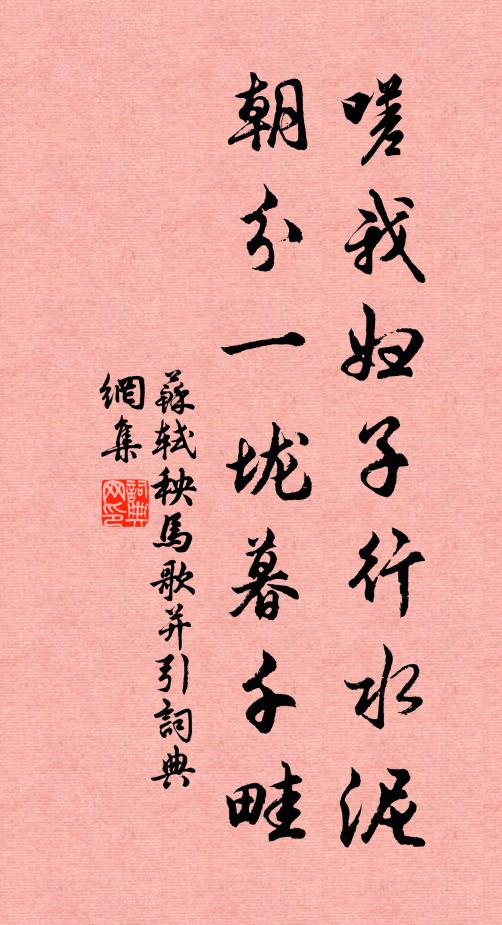 嗟我妇子行水泥
朝分一垅暮千畦
蘇軾秧馬歌并引詞典
網集
詞典網印